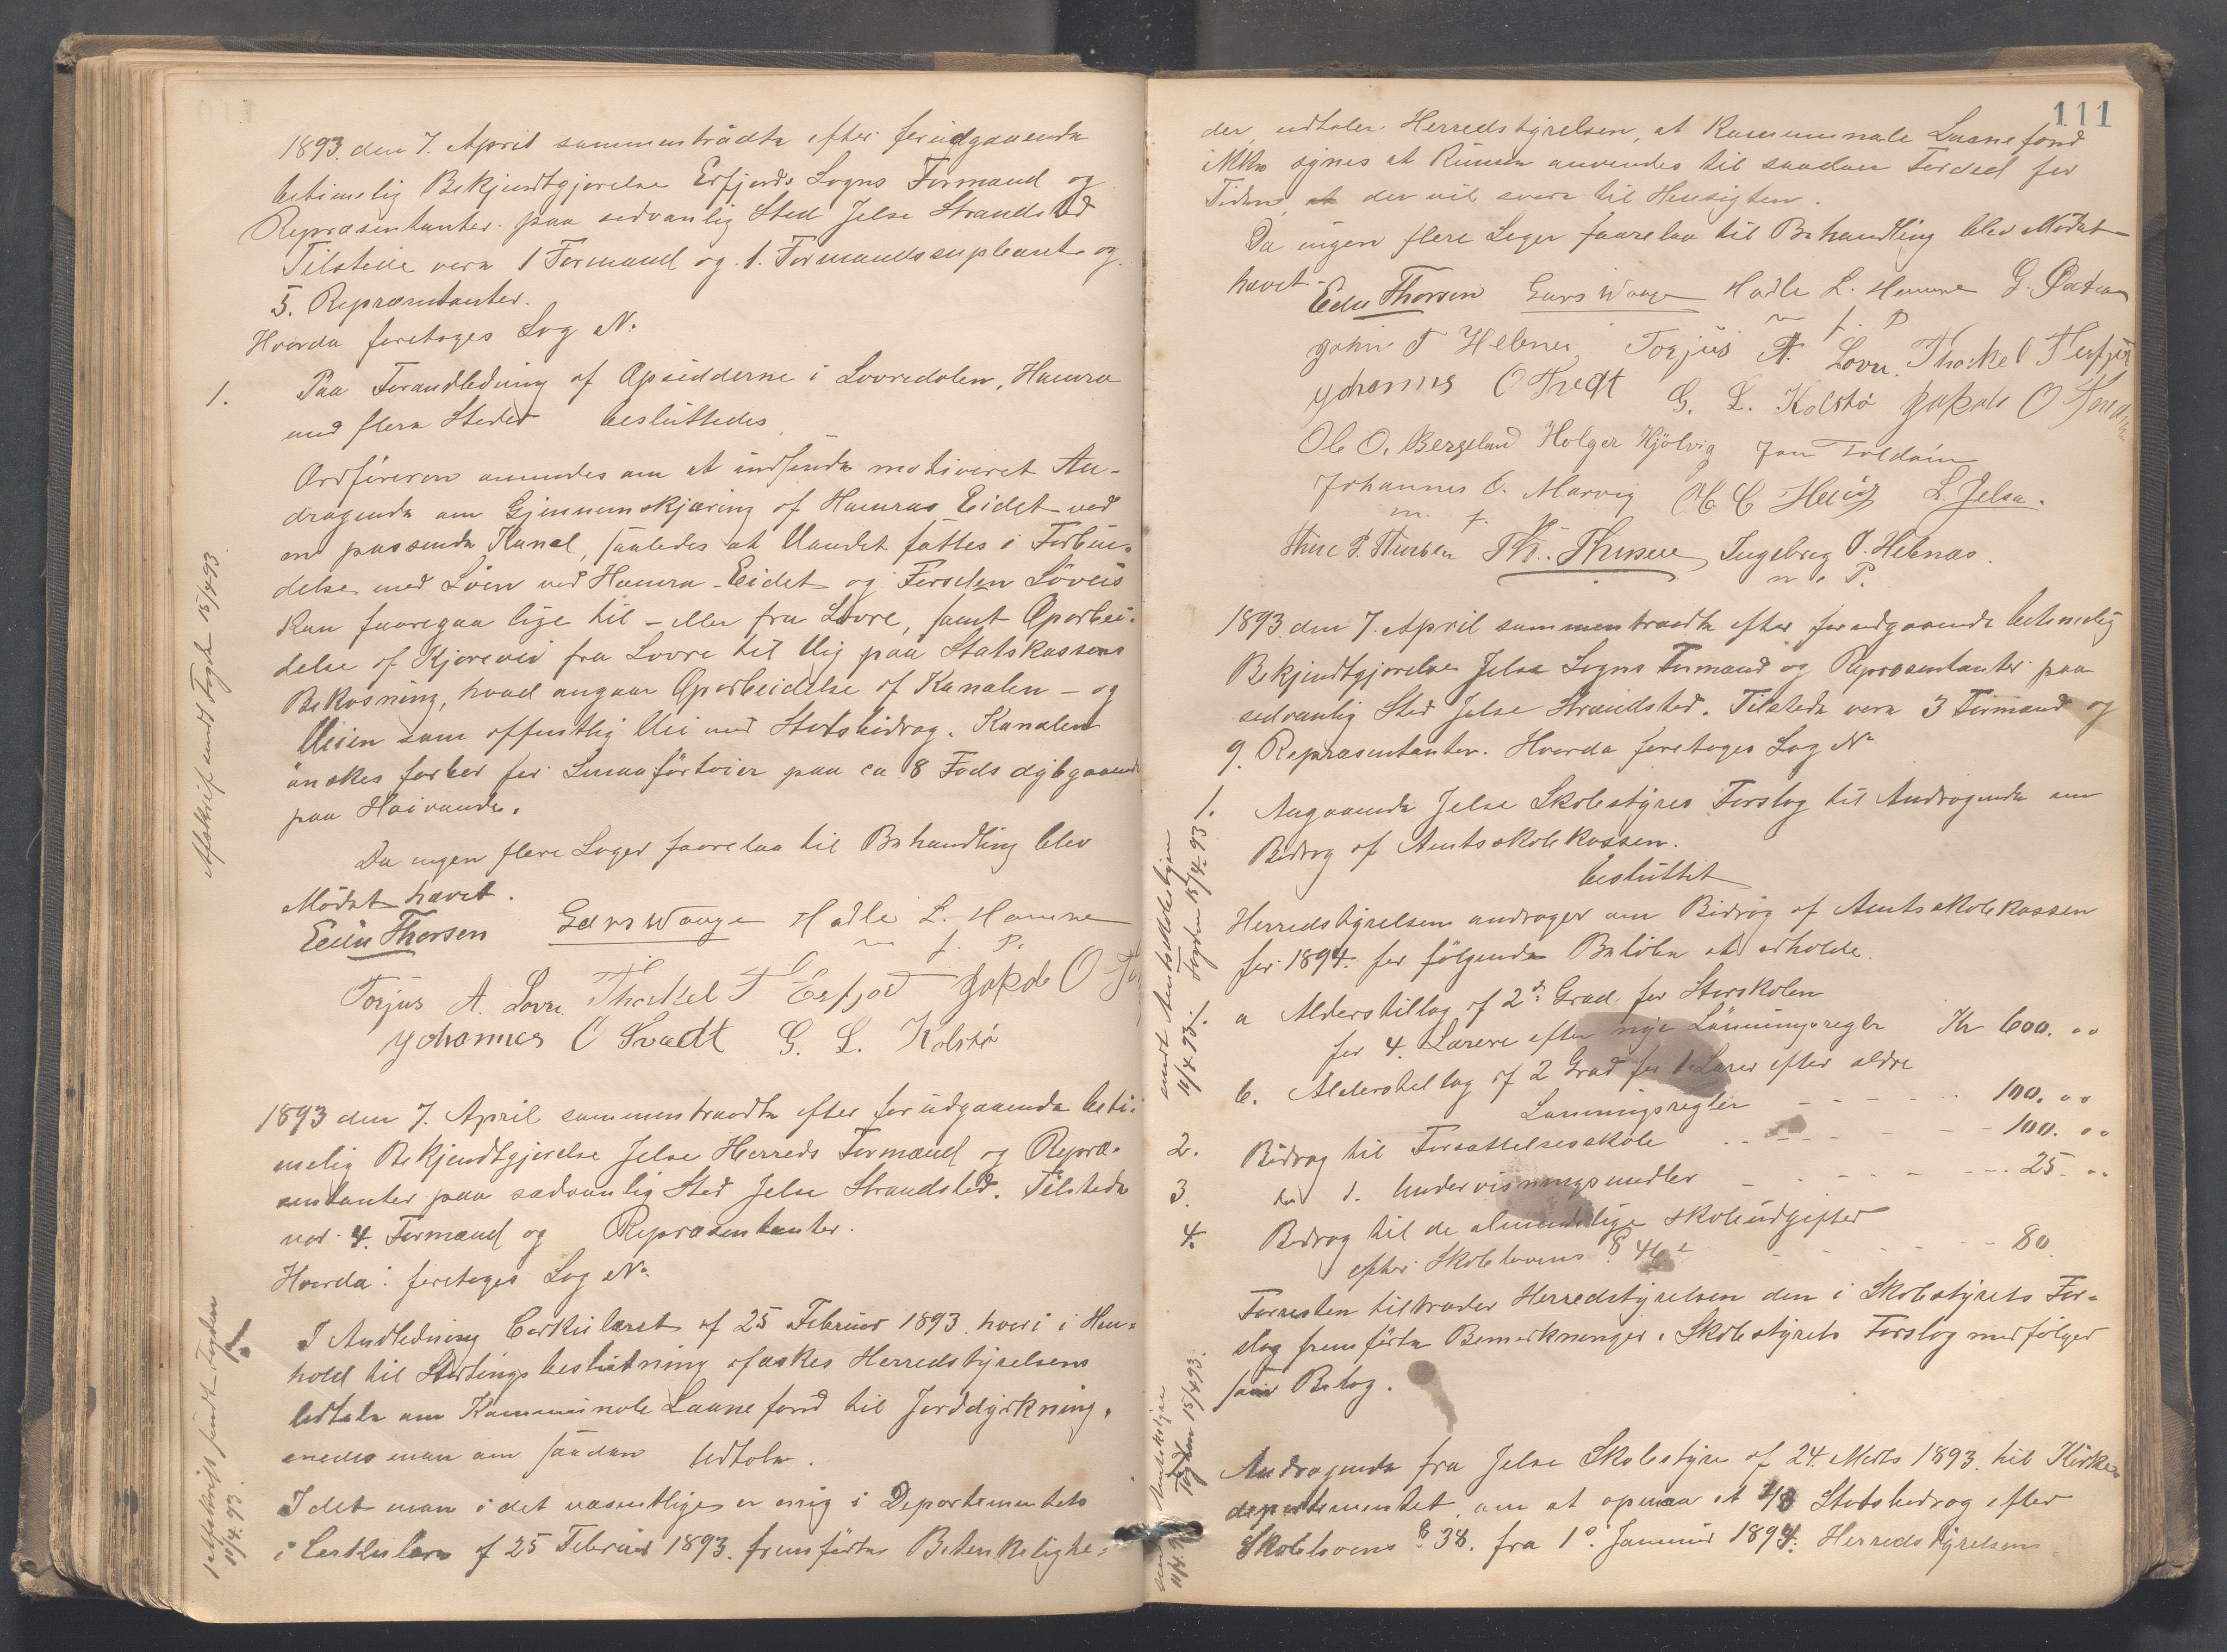 1893. den 7. April sammentrådte efter forudgaaende
betimelig Bekjendtgjørelse Erfjords Sogns Formænd og
Repræsentanter paa sedvanlig Sted Jelse Strandsted
Tilstede vare 1 Formand og 1. Formandssupleant og
5. Repræsentanter.
Hvorda foretoges Sag No
1. Paa Forandledning af Opsidderne i Lovredalen, Hamra
med flere Steder besluttedes
Ordføreren anmodes om at indsende motiveret An-
dragende om Gjennemskjæring af Hamras Eidet ved
en passende Kanal, saaledes at Vandet sættes i Forbin-
delse med Søen ved Hamra-Eidet og Færselen Søveis
kan foregaa lige til - eller fra Lovre, samt Oparbei-
delse af Kjørevei fra Lovre til Vig paa Statskassens
Bekostning, hvad angaar Oparbeidelse af Kanalen - og
Veien som offentlig Vei med Statsbidrag. Kanalen
ønskes farbar for Smaafartøier paa ca 8 Fods dybgaaende
paa Høivande.
Da ingen flere Sager forelaa til Behandling blev
Mødet hævet.
Edin Thorsen Lars Waage Hadle L. Hamre
m. f. P.
Torjus A. Lovre. Thorkel T Erfjord Jakob O
Johannes O Tvedt G. L. Kolstø
Afskrift sendt Fogden 15/4 93
1893 den 7. April sammentraadte efter forudgaaende beti-
melig Bekjendtgjørelse Jelse Herreds Formænd og Repræ-
sentanter paa sædvanlig Sted Jelse Strandsted. Tilstede
var 4. Formænd og Repræsentanter.
Hvorda foretoges Sag No
I Andledning Cirkulæret af 25 Februar 1893. hvori i Hen-
hold til Stortingsbeslutning afæskes Herredstyrelsens
Udtale om Kommunale Laanefond til Jorddyrkning,
enedes man om saadan Udtale.
Idet man i det væsentlige er enig i Departementets
i Cirkulære af 25 Februar 1893. fremførte Betenkelighe-
1 afskrift sendt Fogden
15/4 93.
111
der, udtaler Herredstyrelsen, at Kommunale Laanefond
ikke synes at kunne anvendes til saadan Fordel for
Tiden, at der vil svare til Hensigten.
Da ingen flere Sager forelaa til Behandling blev Mødet
hævet.
Edin Thorsen Lars Waage Hadle L. Hamre G.
m f. P
John T Hebnes Torjus A. Lovre. Thorkel T Erfjord
Johannes O Tvedt G. L. Kolstø Jakob O
Ole O. Bergeland Holger Hjølvig Jon Foldøin
Johannes O. Marvig L. Jelsa.
m. f. P
Th. Thime Ingebreg O. Hebnæs.
m. P.
1893. den 7. April sammentraadte efter forudgaaende betimelig
Bekjendtgjørelse Jelse Sogns Formænd og Repræsentanter paa
sedvanlig Sted Jelse Strandsted. Tilstede vare 3 Formænd og
9. Repræsentanter. Hvorda foretoges Sag No
1. Angaaende Jelse Skolestyres Forslag til Andragende om
Bidrag af Amtsskolekassen.
besluttet
Herredstyrelsen andrager om Bidrag af Amtsskolekassen
for 1894. for følgende Beløbe at erholde.
a Alderstillæg af 2den Grad for Storskolen
for 4. Lærere efter nye Lønningsregler Kr 600. 00
b. Alderstillæg af 2 Grad for 1 Lærer efter ældre
Lønningsregler - - - - - 100. 00
2. Bidrag til Forsættelsesskole - - - - - 100. 00
3. do d. Undervisningsmidler - - - - - 25. 00
4. Bidrag til de almindelige Skoleudgifter
efter Skolelovens § 46 - - - - - 80
Forresten tiltræder Herredstyrelsen den i Skolestyrets For-
slag fremførte Bemærkninger. Skolestyrets Forslag medfølger
som Bilag.
sendt Amtsskolestyret
11/4. 93. Fogden 15/4. 93
Andragende fra Jelse Skolestyre af 24. Marts 1893. til Kirke-
departementet, om at opnaa et 1/3 Statsbidrag efter
Skolelovens § 38. fra 1ste Januar 1894. Herredstyrelsen
Fogden 15/4 93.